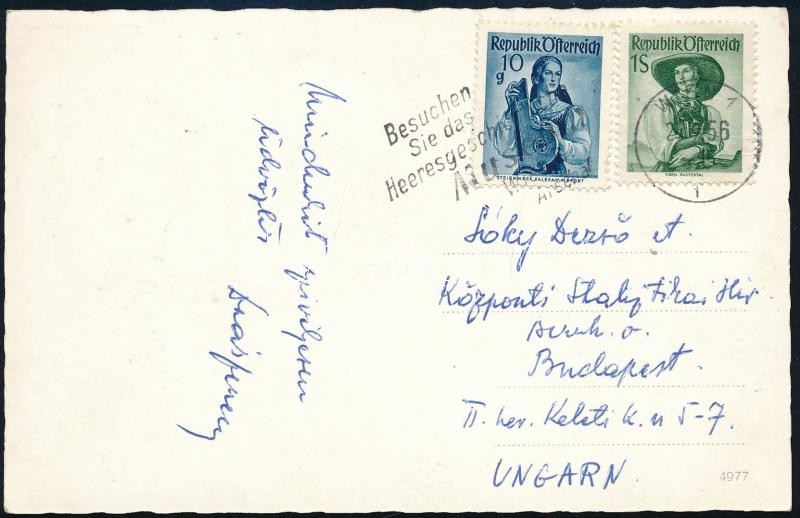 Republik Österreich
10
g
STEIERMARK, SALZKAMMERGUT
Republik Österreich
1S
TIROL, PUSTERTAL
Besuchen
Sie das
Heeresgesch
Mus
Arsenal
WIE
56
1
Mindenkit szívélyesen
üdvözlis
Sóky Dezső et.
Központi Hiv.
o.
Budapest.
II. ker. Keleti K. u 5-7.
UNGARN.
4977